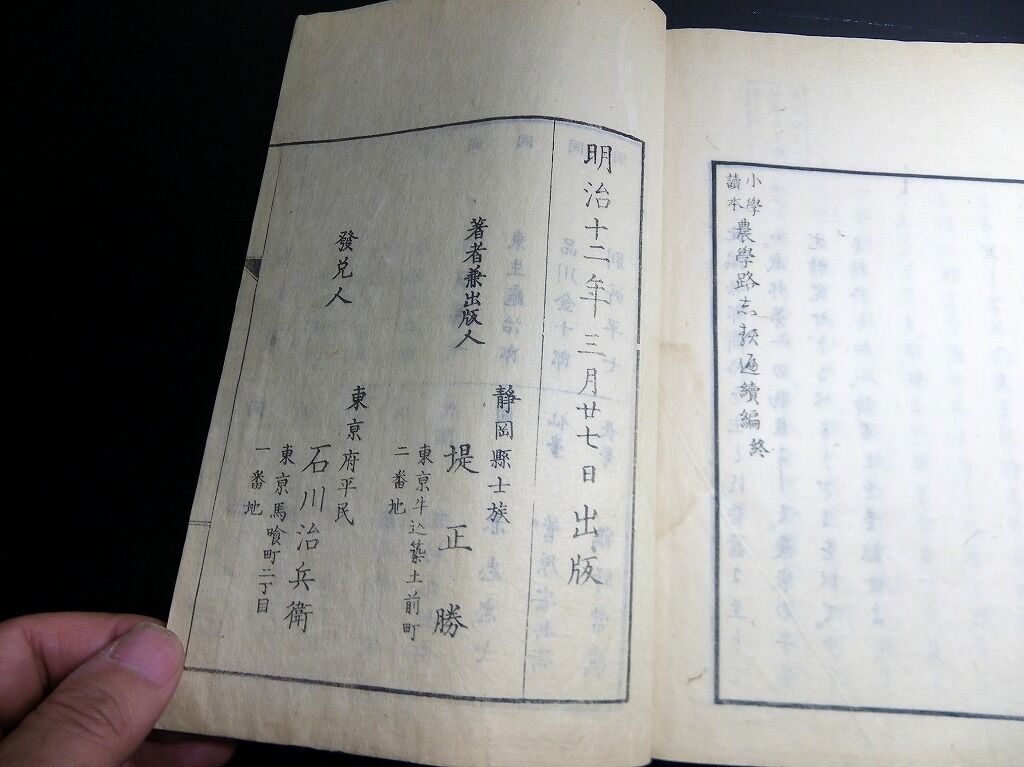 小學
讀本
農學路志敎遍續編終
明治十二年三月廿七日出版
著者兼出版人
靜岡縣士族
堤正勝
東京牛込築土前町
二番地
發兌人
東京府平民
石川治兵衛
東京馬喰町二丁目
一番地